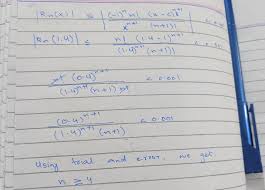 |Rn(x)| ≤ | (-1)^n n! (x-c)^{n+1} / x^{n+1} (n+1)! |
|Rn(1.4)| ≤ n! (1.4-1)^{n+1} / (1.4)^{n+1} (n+1)!
n! (0.4)^{n+1} / (1.4)^{n+1} (n+1) n! < 0.001
(0.4)^{n+1} / (1.4)^{n+1} (n+1) < 0.001
Using trial and error, we get
n ≥ 4